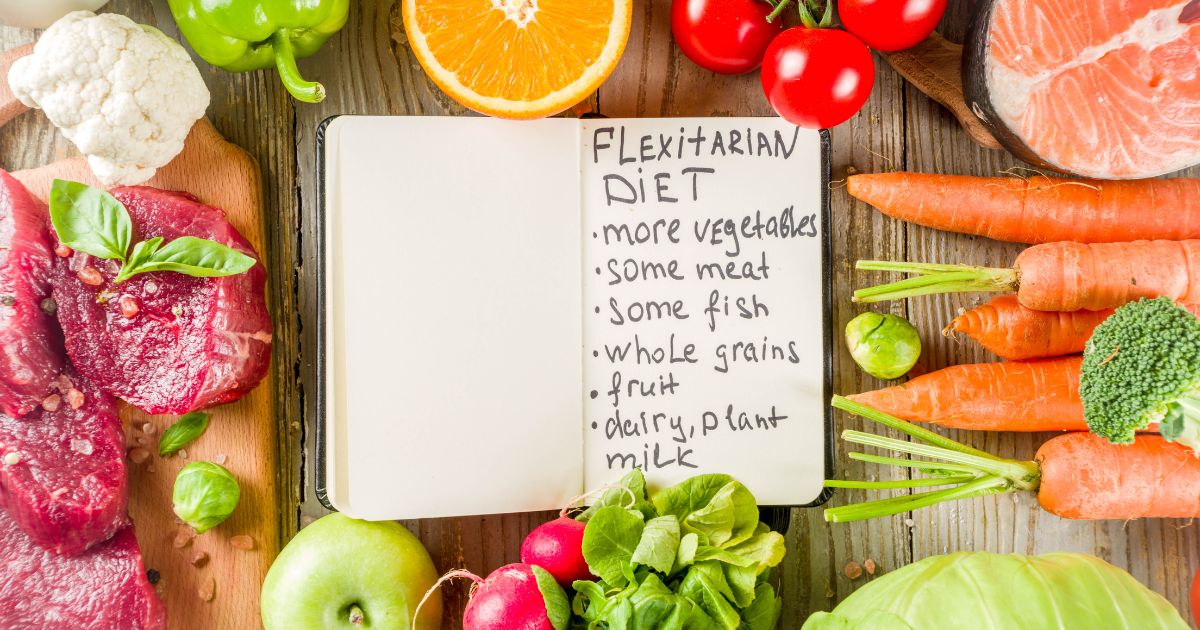 FLEXitARIAN
DiET
• more vegetables
• some meat
• some fish
• whole grains
• fruit
• dairy, plant
milk